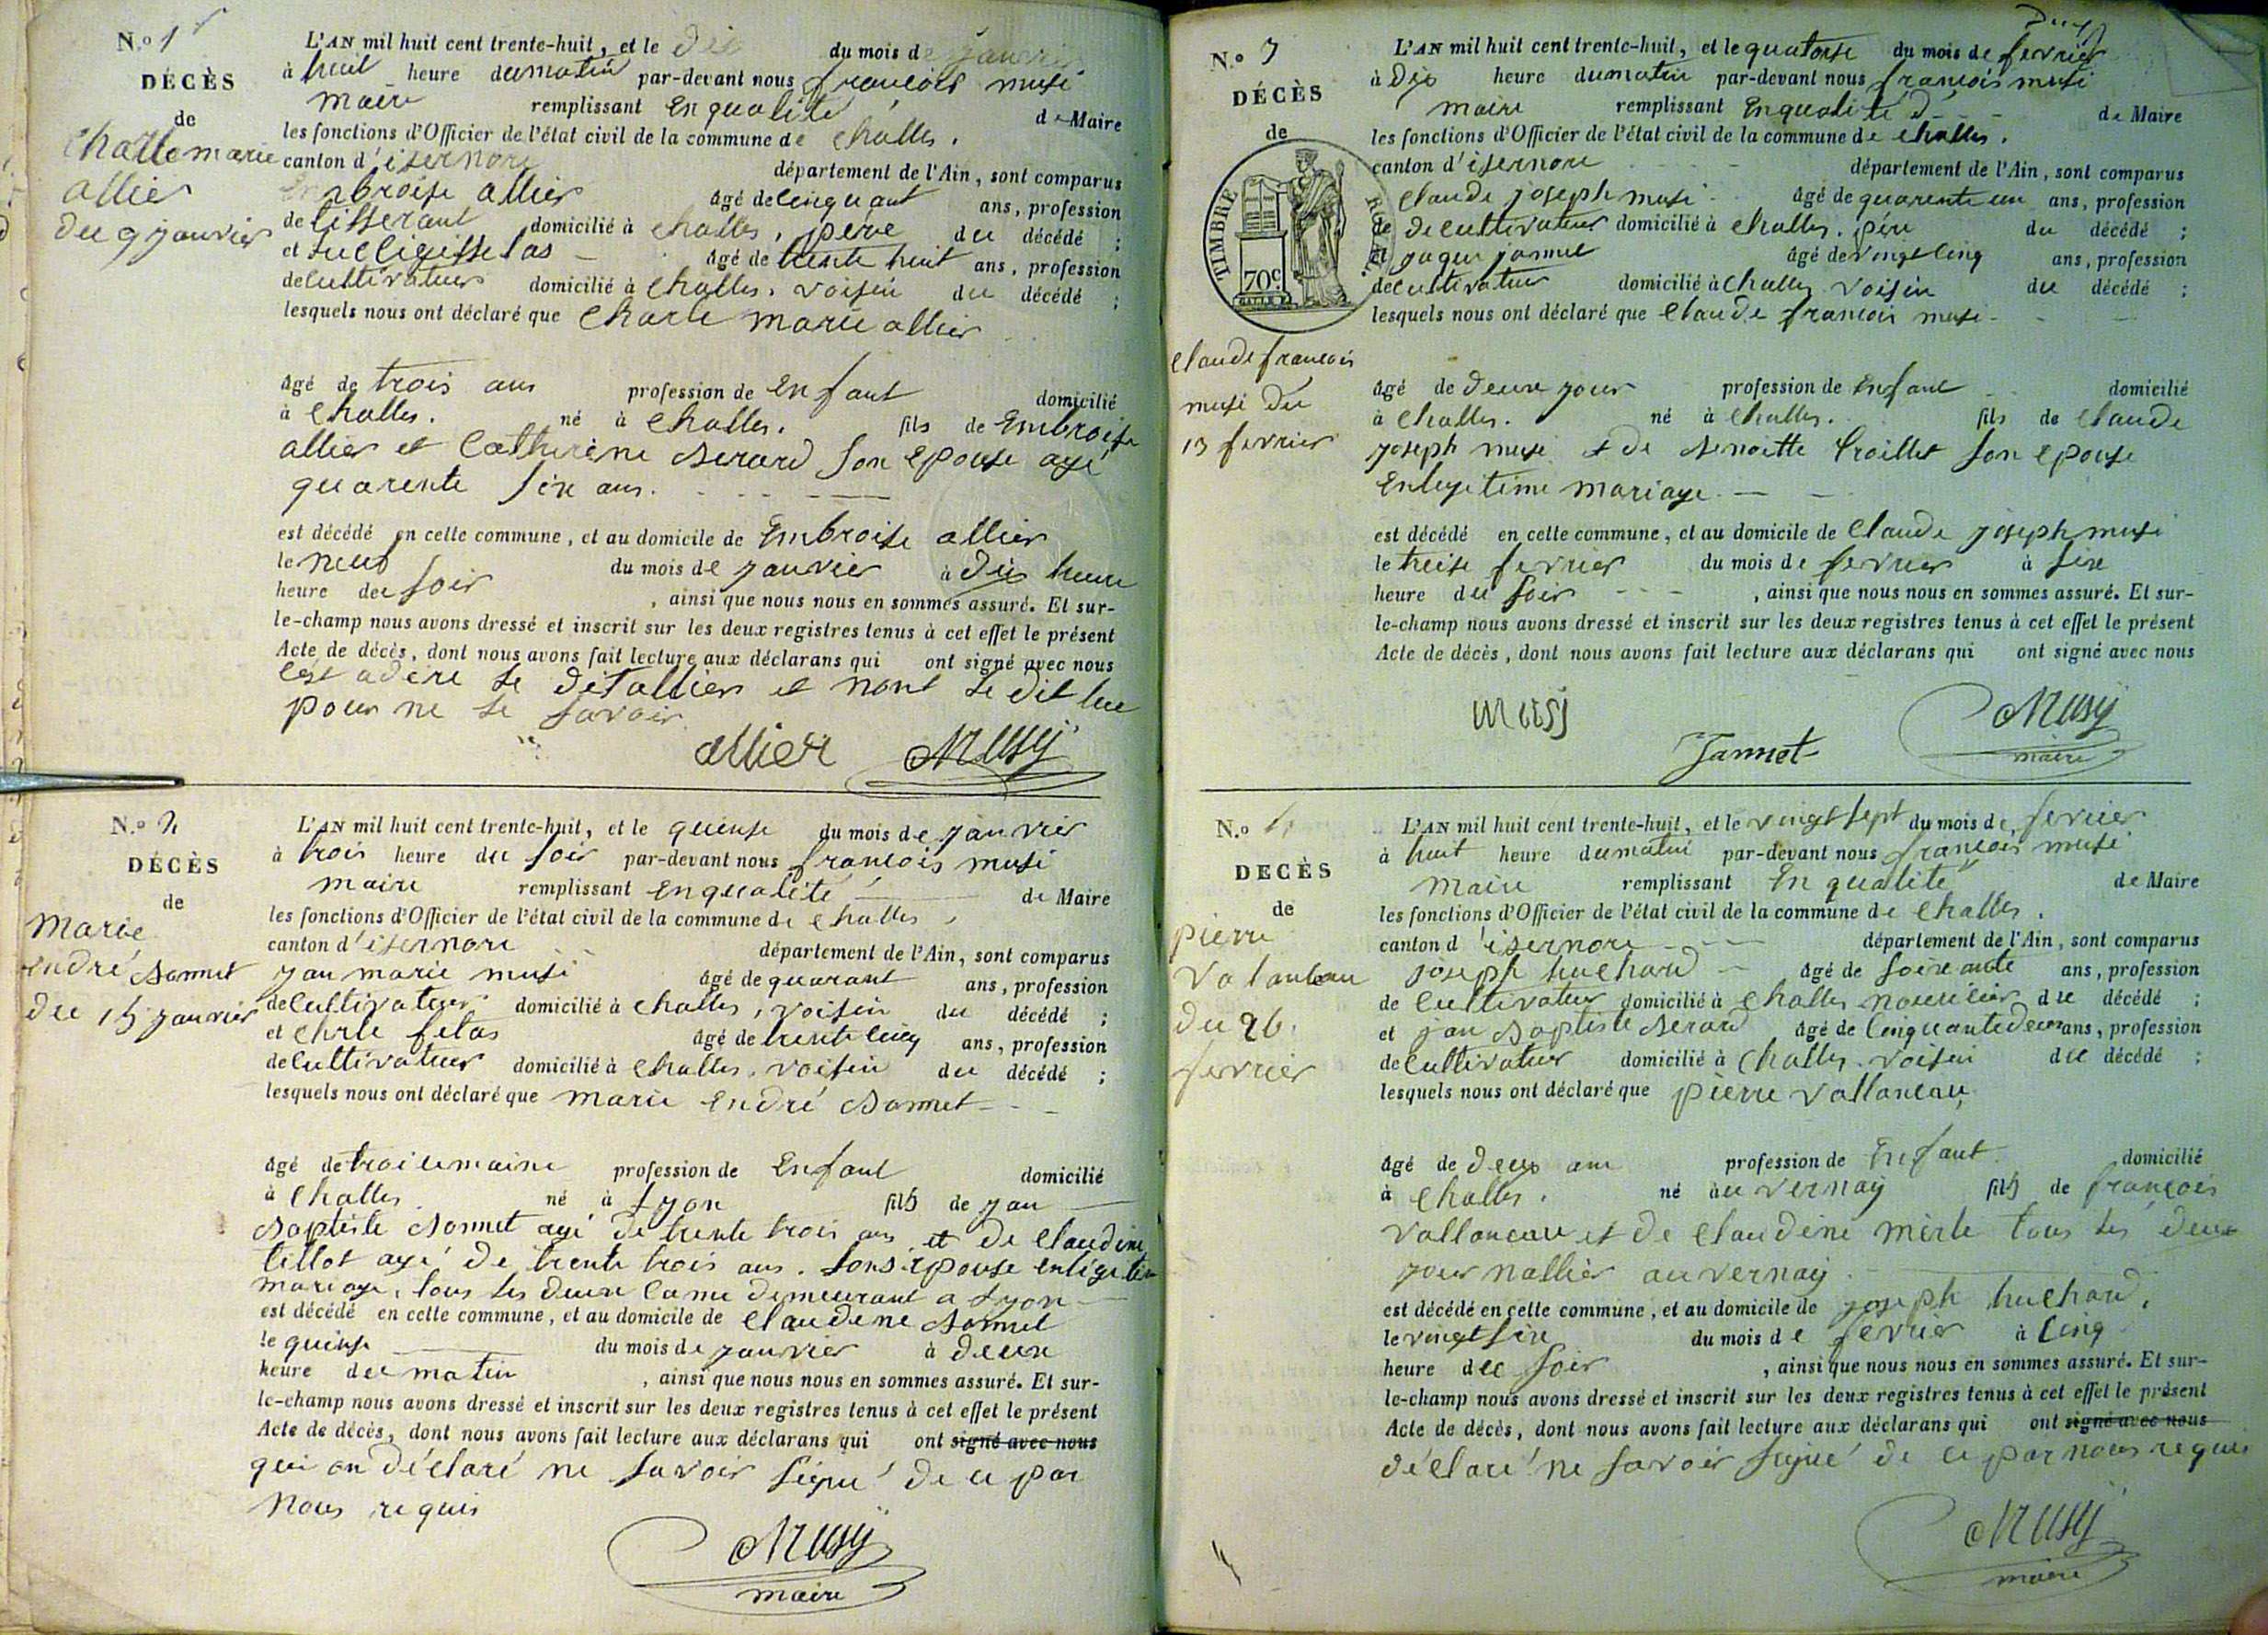 N.o 1
DÉCÈS
de
Charle marie
allier
du 9 janvier
L'AN mil huit cent trente-huit, et le dix du mois de janvier
à huit heure du matin par-devant nous francois musi
maire remplissant en qualité de Maire
les fonctions d'Officier de l'état civil de la commune de challes.
canton d'isernore département de l'Ain, sont comparus
Embroise allier âgé de cinquant ans, profession
de tisserant domicilié à challes, père du décédé ;
et âgé de trente huit ans, profession
de cultivateur domicilié à challes. voisin du décédé ;
lesquels nous ont déclaré que Charle marie allier
âgé de trois ans profession de enfant domicilié
à challes. né à challes. fils de Embroise
allier et Catherine Berard son epouse agé
quarente six ans.
est décédé en cette commune, et au domicile de Embroise allier
le neuf du mois de janvier à dix heure
heure du soir , ainsi que nous nous en sommes assuré. Et sur-
le-champ nous avons dressé et inscrit sur les deux registres tenus à cet effet le présent
Acte de décès, dont nous avons fait lecture aux déclarans qui ont signé avec nous
et nont le dit luc
pour ne le savoir
allier Musy
N.o 2
DÉCÈS
de
Marie
endré Bonnet
du 15 janvier
L'AN mil huit cent trente-huit, et le quinse du mois de janvier
à trois heure du soir par-devant nous francois musi
maire remplissant en qualité de Maire
les fonctions d'Officier de l'état civil de la commune de challes,
canton d'isernore département de l'Ain, sont comparus
jan marie musi âgé de quarant ans, profession
de cultivateur domicilié à challes, voisin du décédé ;
et chrle felas âgé de trente cinq ans, profession
de cultivateur domicilié à challes, voisin du décédé ;
lesquels nous ont déclaré que marie endré Bonnet
âgé de troi cemaine profession de Enfant domicilié
à challes né à Lyon fils de jan
Baptiste Bonnet agé de trente trois ans et de claudine
tillot agé de trente trois ans. son epouse enlégitim
mariage, tous les deux demeurant a Lyon
est décédé en cette commune, et au domicile de Claudene Bonnet
le quinse du mois de janvier à deux
heure du matin , ainsi que nous nous en sommes assuré. Et sur-
le-champ nous avons dressé et inscrit sur les deux registres tenus à cet effet le présent
Acte de décès, dont nous avons fait lecture aux déclarans qui ont signé avec nous
qui on déclaré ne savoir signé de ce par
nous requis
Musy
maire
N.o 3
DÉCÈS
de
TIMBRE ROYAL.
70c
claude francois
musi du
13 fevrier
L'AN mil huit cent trente-huit, et le quatorse du mois de fevrier
à dix heure du matin par-devant nous francois musi
maire remplissant en qualité d de Maire
les fonctions d'Officier de l'état civil de la commune de challes.
canton d'isernore département de l'Ain, sont comparus
claude joseph musi âgé de quarente un ans, profession
de de cultivateur domicilié à challes. père du décédé ;
et jaque jannet âgé de vingt cinq ans, profession
de cultivateur domicilié à challes voisin du décédé ;
lesquels nous ont déclaré que claude francois musi
âgé de deux jour profession de enfant domicilié
à challes. né à challes. fils de claude
joseph musi et de Benoitte Croillet son epouse
en legitime mariage
est décédé en cette commune, et au domicile de claude joseph musi
le treise fevrier du mois de fevrier à six
heure du soir , ainsi que nous nous en sommes assuré. Et sur-
le-champ nous avons dressé et inscrit sur les deux registres tenus à cet effet le présent
Acte de décès, dont nous avons fait lecture aux déclarans qui ont signé avec nous
musy
Jannet
Musy
maire
N.o
DECÈS
de
pierre
valanceau
du 26.
fevrier
L'AN mil huit cent trente-huit, et le vingt sept du mois de fevrier
à huit heure du matin par-devant nous francois musi
maire remplissant en qualité de Maire
les fonctions d'Officier de l'état civil de la commune de challes.
canton d'isernore département de l'Ain, sont comparus
joseph huchard âgé de soixante ans, profession
de cultivateur domicilié à challes nouricier du décédé ;
et jan Baptiste Berard âgé de cinquante deux ans, profession
de cultivateur domicilié à challes. voisin du décédé ;
lesquels nous ont déclaré que pierre vallanceau
âgé de deux ans profession de Enfant domicilié
à challes. né au vernay fils de françois
vallanceau et de claudine merle tous les deux
journallier au vernay
est décédé en cette commune, et au domicile de joseph huchard,
le vingt six du mois de fevrier à cinq
heure du soir , ainsi que nous nous en sommes assuré. Et sur-
le-champ nous avons dressé et inscrit sur les deux registres tenus à cet effet le présent
Acte de décès, dont nous avons fait lecture aux déclarans qui ont signé avec nous
déclaré ne savoir signé de ce par nous requis
Musy
maire